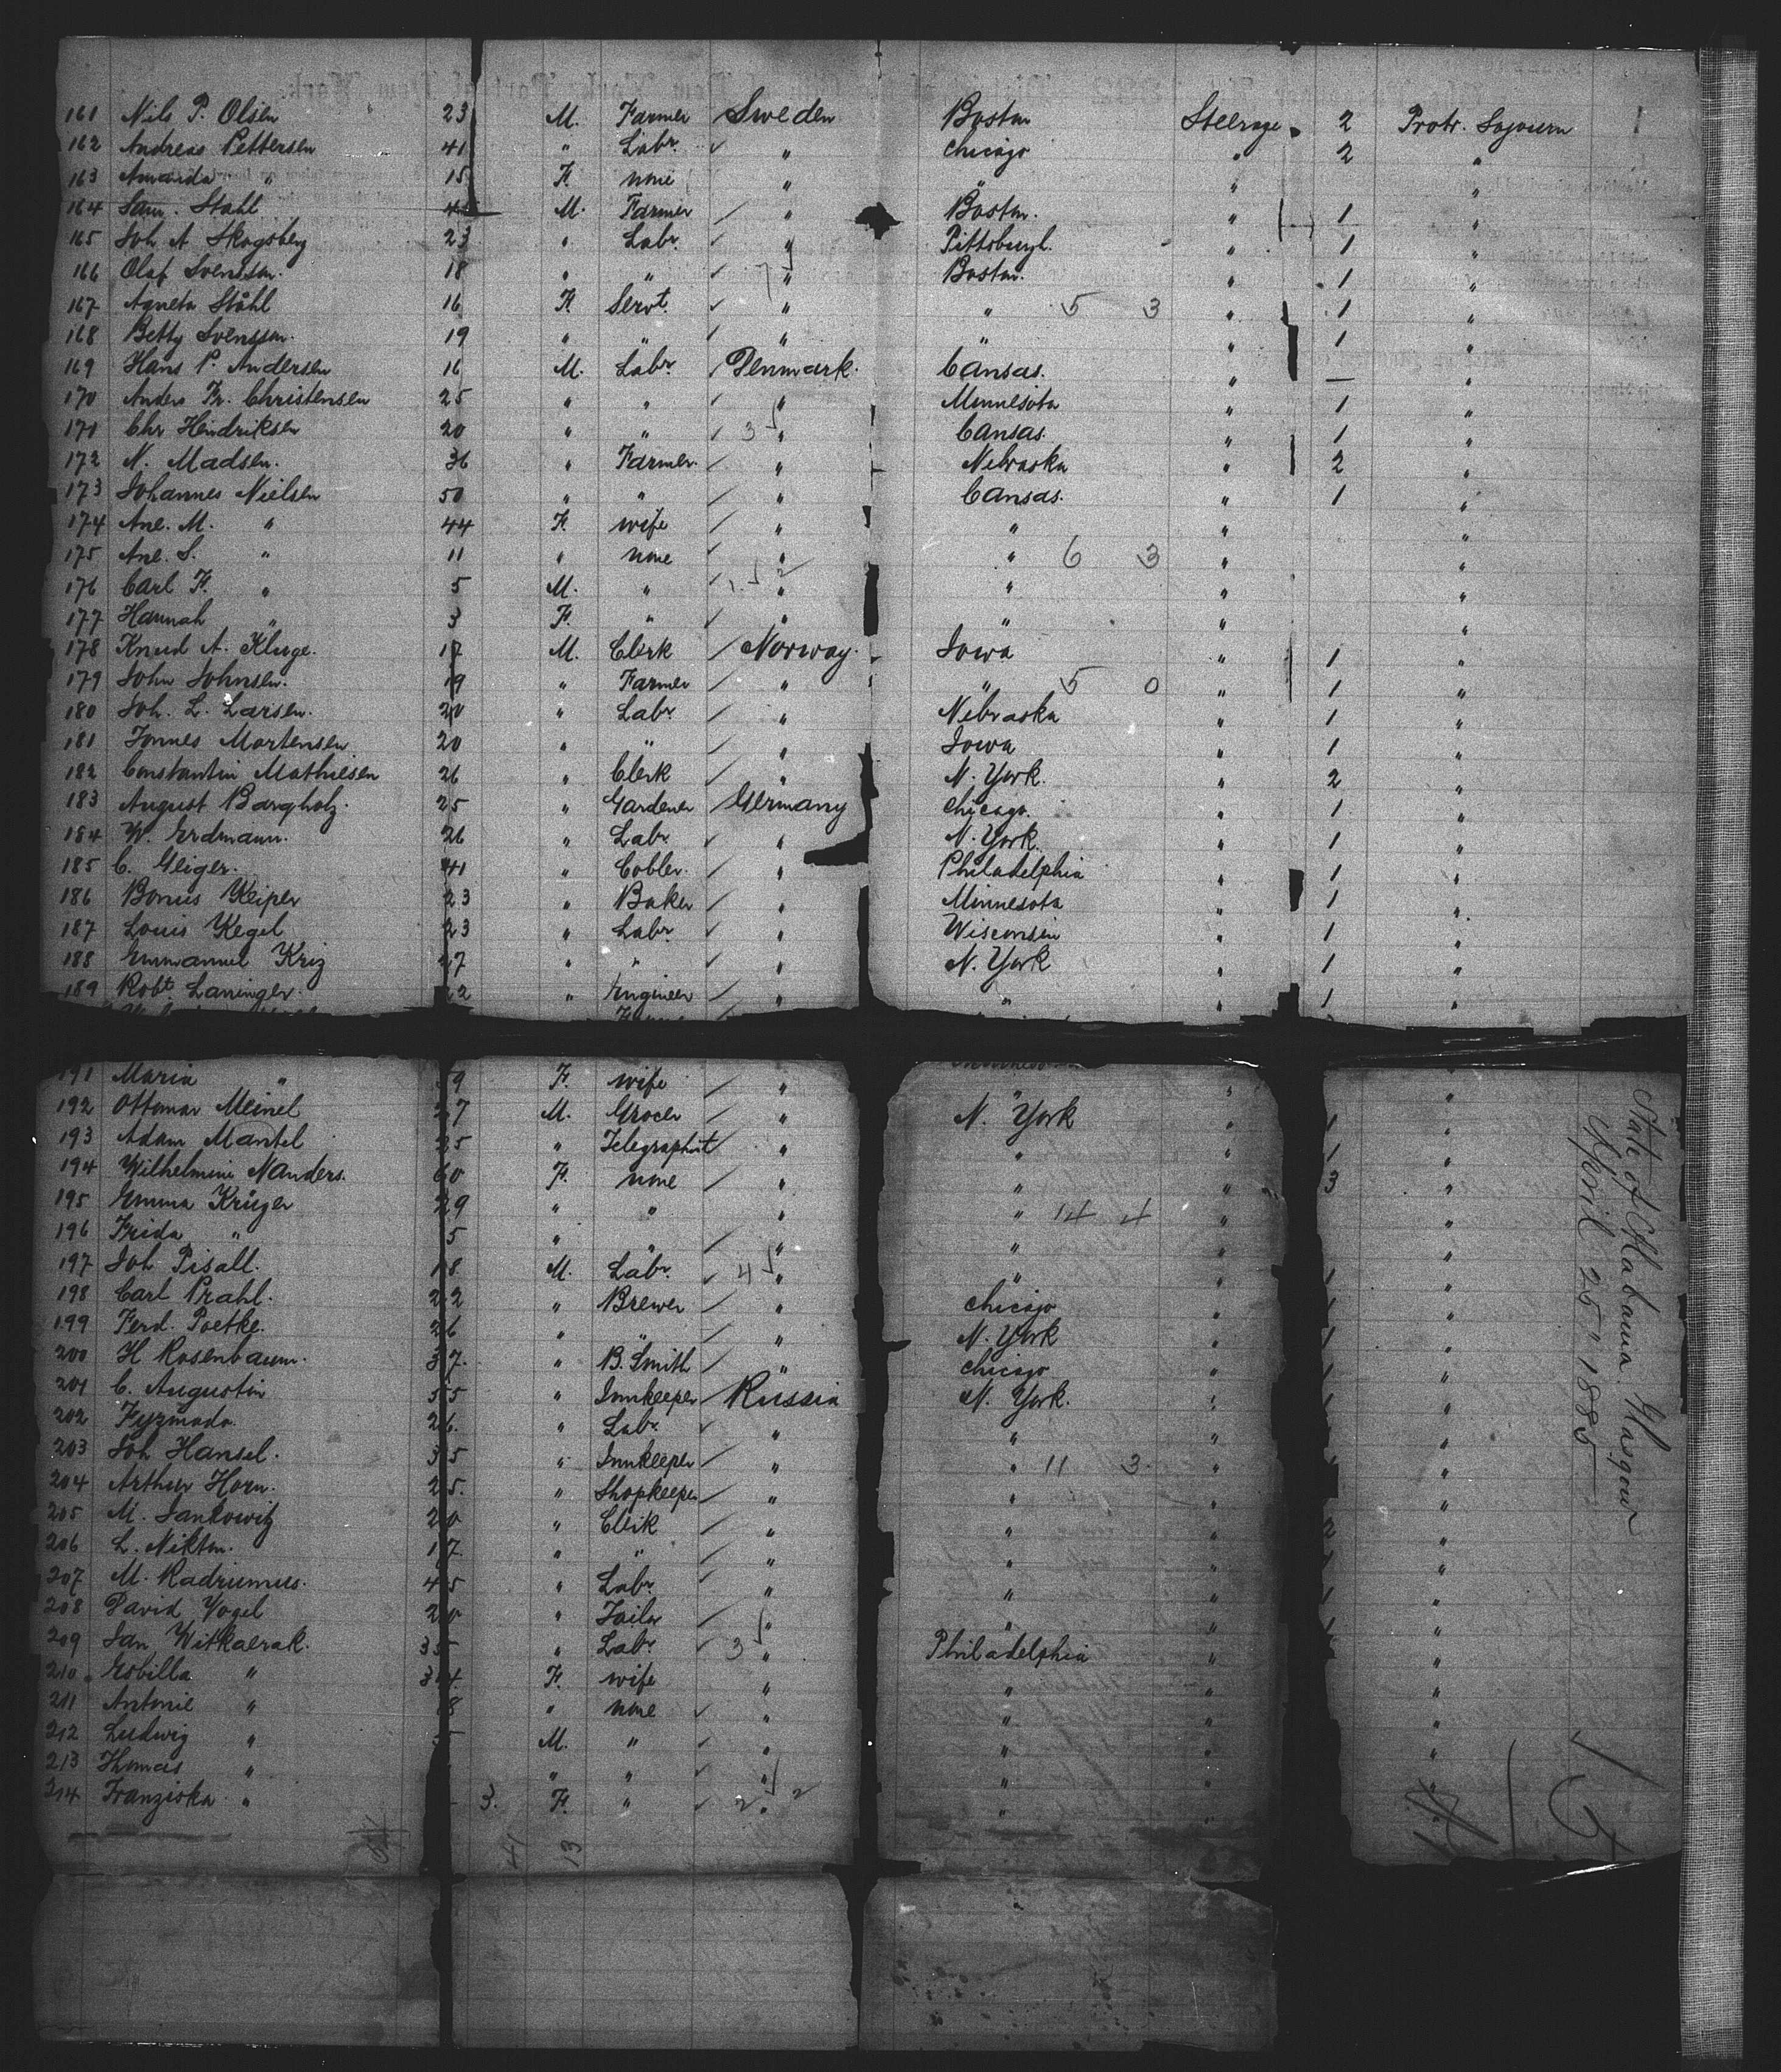 161 Nils P. Olsen 23 M. Farmer Sweden Boston Steerage 2 Protr. Sojourn
162 Andreas Pettersen 41 " Labr. " Chicago " 2 "
163 Amanda " 15 F. none " " " "
164 Sam. Stahl M. Farmer " Boston. " 1 "
165 Joh. A. Skogsberg 23 " Labr. " Pittsburgh. " 1 "
166 Olaf Svensson. 18 " " " Boston. " 1 "
167 Agneta Ståhl 16 F. Servt. " " 5 3 " 1 "
168 Betty Svensson. 19 " " " " " 1 "
169 Hans P. Andersen 16 M. Labr. Denmark. Cansas. " — "
170 Anders Fr. Christensen 25 " " " Minnesota " 1 "
171 Chr Hendriksen 20 " " 3 " Cansas. " 1 "
172 N. Madsen. 36 " Farmer. " Nebraska " 2 "
173 Johannes Nielsen 50 " " " Cansas. " 1 "
174 Ane. M. " 44 F. wife " " " "
175 Ane. S. " 11 " none " " 6 3 " "
176 Carl F. " 5 M. " " " " "
177 Hannah " 3 F. " " " " "
178 Knud A. Kluge. 17 M. Clerk Norway. Iowa " 1 "
179 John Johnsen. 19 " Farmer " " 5 0 " 1 "
180 Joh. L. Larsen. 20 " Labr. " Nebraska " 1 "
181 Tonnes Mortensen 20 " " " Iowa " 1 "
182 Constantin Mathiesen 26 " Clerk " N. York. " 2 "
183 August Bargholz. 25 " Gardener Germany Chicago. " 1 "
184 W. Erdmann. 26 " Labr. " N. York. " 1 "
185 C. Geiger. 41 " Cobler. " Philadelphia " 1 "
186 Bonus Keiper 23 " Baker " Minnesota " 1 "
187 Louis Kegel 23 " Labr. " Wisconsin " 1 "
188 Emmanuel Kriz 27 " " " N. York " 1 "
189 Robt. Laninger. 22 " Engineer " " " 1 "
191 Maria " 59 F. wife " " "
192 Ottomar Meinel 27 M. Grocer " N. York " 1 "
193 Adam Mantel 25 " Telegraphist " " " 1 "
194 Wilhelmine Nanders. 60 F. none " " " 3 "
195 Emma Krüger 29 " " " " 14 4 " "
196 Frida " 5 " " " " " "
197 Joh Pisall. 18 M. Labr. 4 " " " 1 "
198 Carl Prahl. 22 " Brewer " Chicago " 1 "
199 Ferd. Poetke. 26 " " " N. York " 1 "
200 H Rosenbaum. 37. " B. Smith " Chicago " 1 "
201 C. Augustin 55 " Innkeeper Russia N. York. " 1 "
202 Fyzmada. 26. " Labr. " " " "
203 Joh Hansel. 35 " Innkeeper " " 11 3. " "
204 Arthur Horn. 25. " Shopkeeper " " " "
205 M. Jankowitz 20 " Clerk " " " 2 "
206 L. Nikton. 17. " " " " " "
207 M. Radriumus. 45 " Labr. " " " 1 "
208 David Vogel 20 " Tailor " " " 1 "
209 Jan Witkaerak. 35 " Labr. 3 " Philadelphia " "
210 Esbilla " 34. F. wife " " " "
211 Antonie " 8 " none " " " "
212 Ludwig " M. " " " " "
213 Thomas " " " " " " "
214 Franziska " 3. F. " 2 " 2 " "
41 13
State of Alabama. Glasgow
April 25" 1885